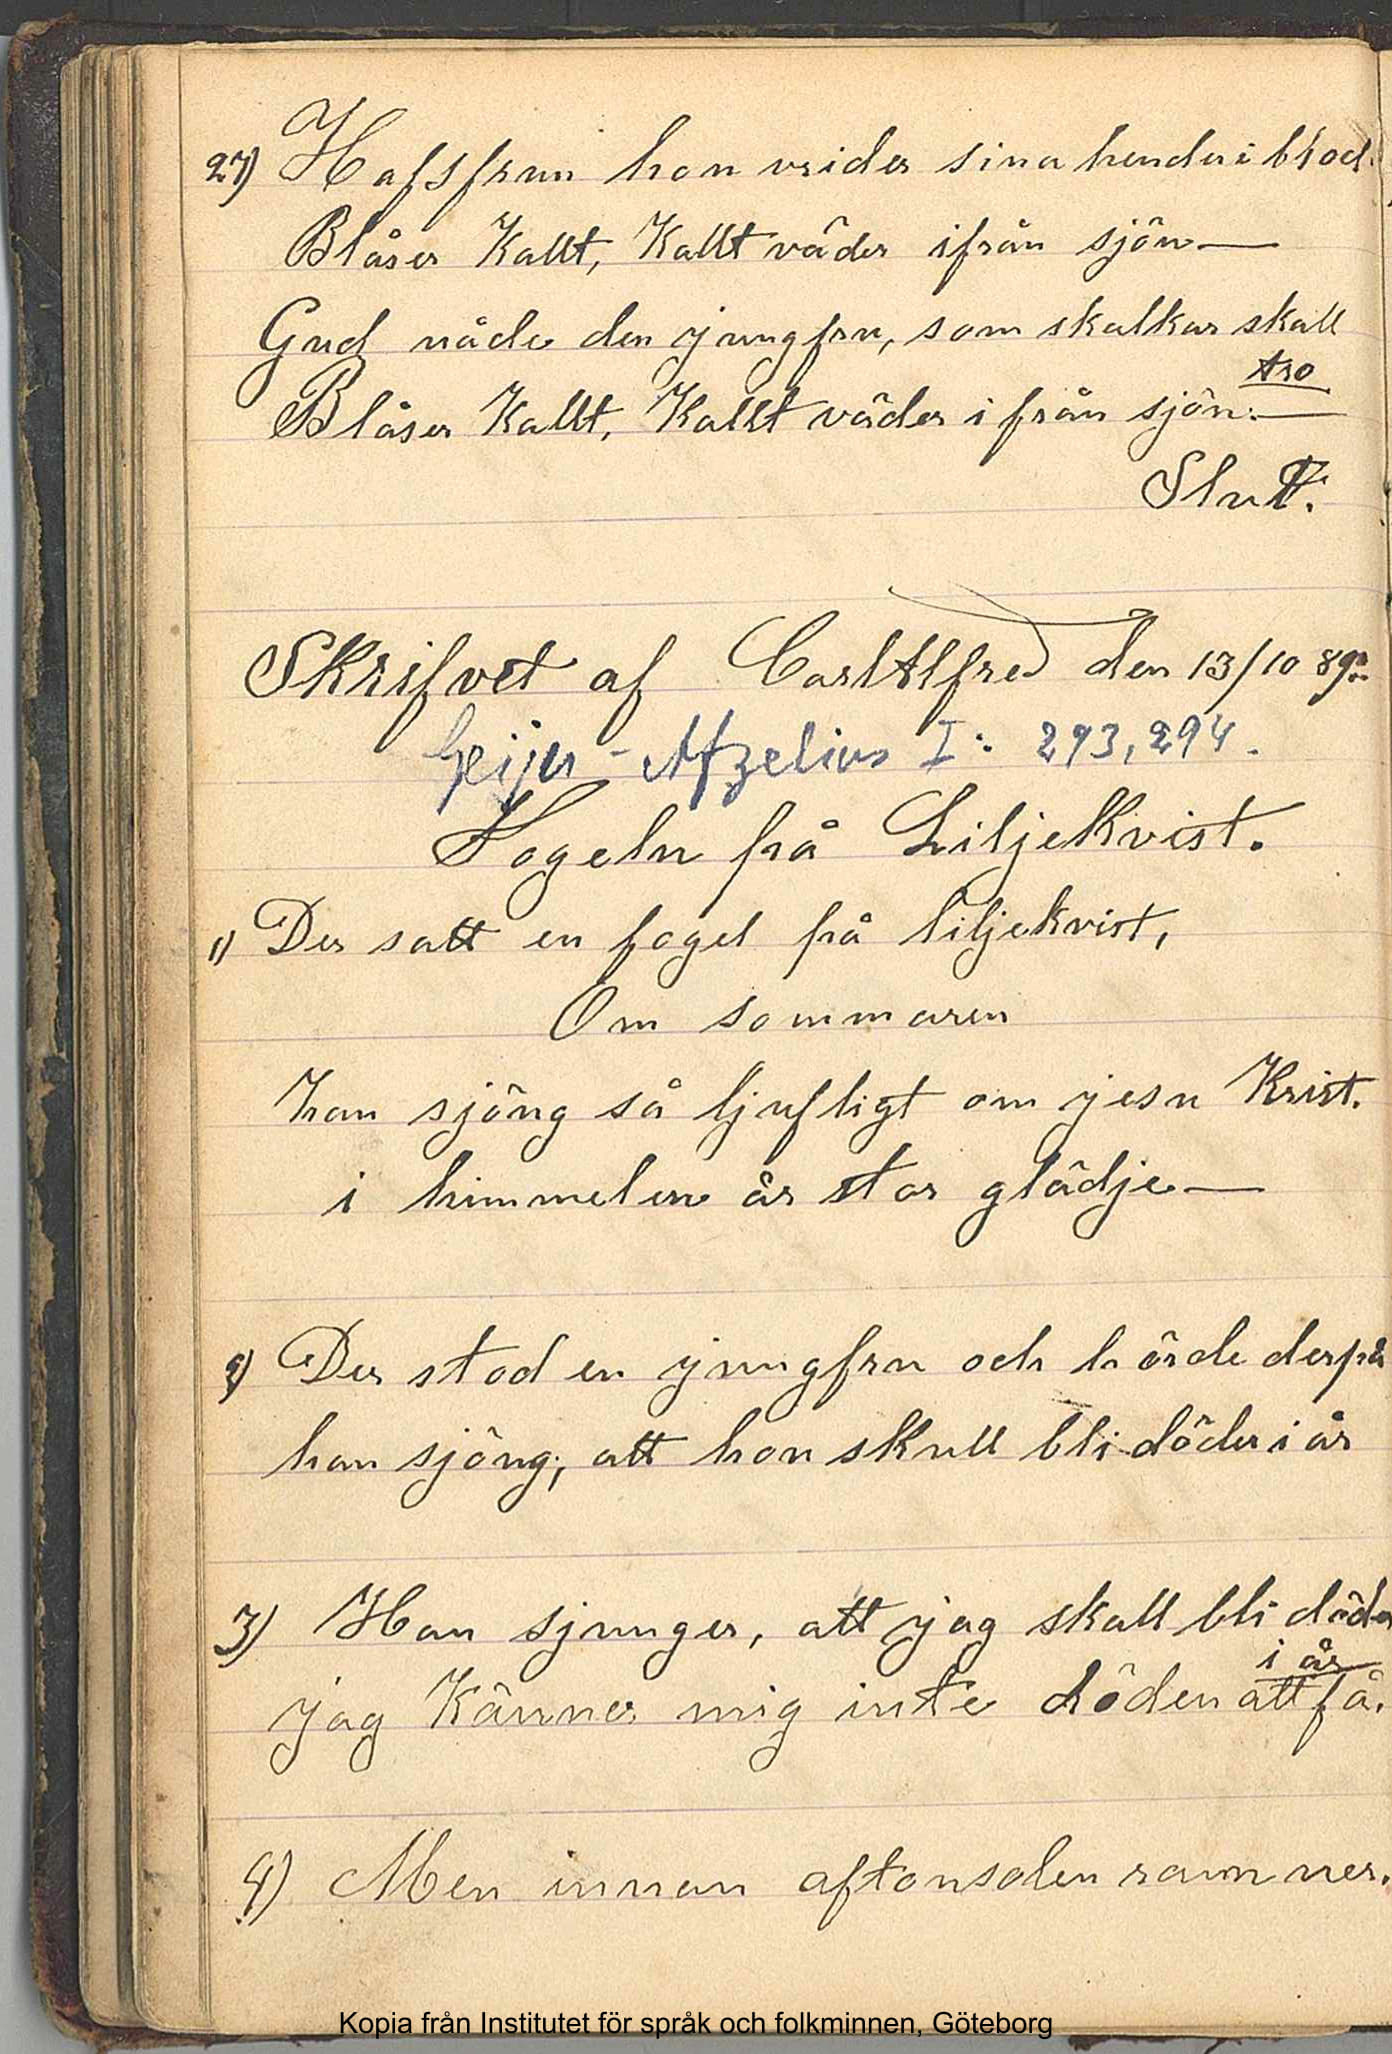 27) Hafsfrun hon vrider sina hender i blod.
Blåser Kallt, Kallt väder ifrån sjön—
Gud nåde den jungfru, som skalkar skall
tro
Blåser Kallt, Kallt väder ifrån sjön.—
Slut.
Skrifvet af Carl Alfred den 13/10 89.
Geijer-Afzelius I: 293, 294.
Fogeln på Liljekvist.
1) Der satt en fogel på liljekvist,
Om sommaren
han sjöng så ljufligt om jesu Krist.
i himmelen är stor glädje—
2) Der stod en jungfru och hörde derpå
han sjöng, att hon skull bli döder i år
3) Han sjunger, att jag skall bli döder
i år
jag Känner mig inte döden att få.
4) Men innan aftonsolen rann ner.
Kopia från Institutet för språk och folkminnen, Göteborg